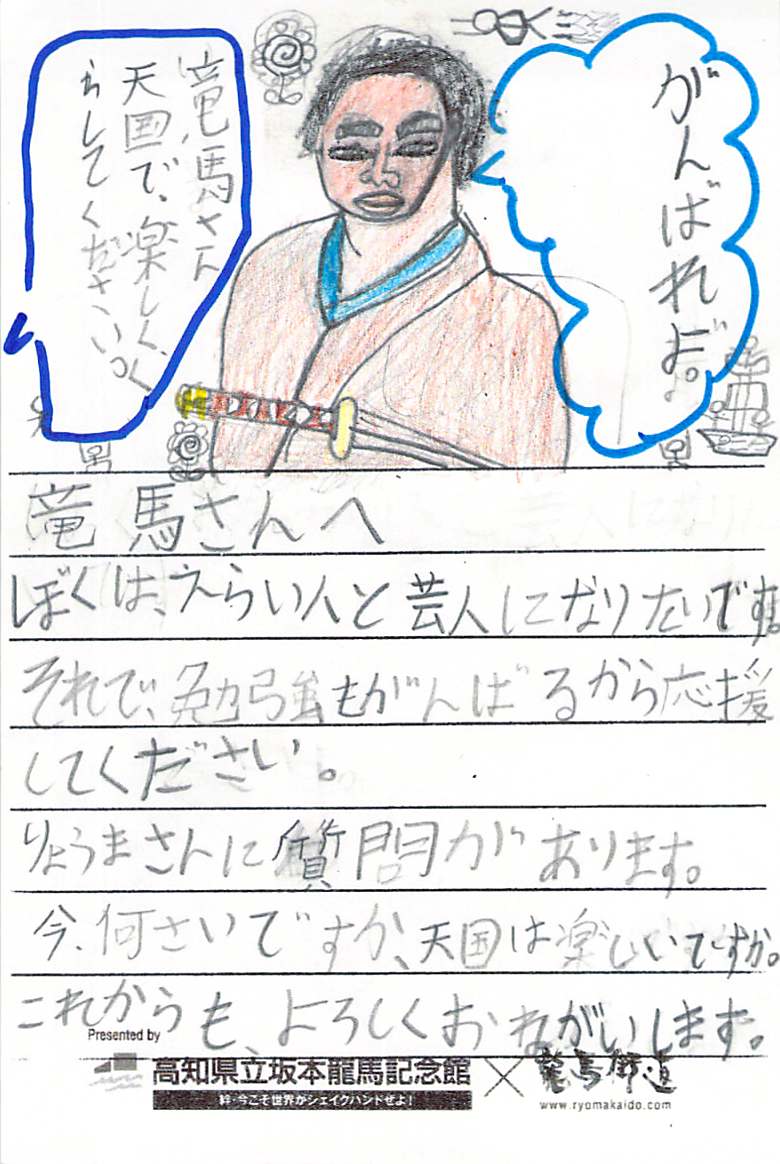 がんばれよ。
竜馬さん
天国で、楽しく、く
らしてください。
竜馬さんへ
ぼくは、えらい人と芸人になりたいです。
それで、勉強もがんばるから応援
してください。
りょうまさんに質問があります。
今、何さいですか、天国は楽しいですか。
これからも、よろしくおねがいします。
Presented by
高知県立坂本龍馬記念館
絆・今こそ世界がシェイクハンドぜよ!
×
龍馬街道
www.ryomakaido.com